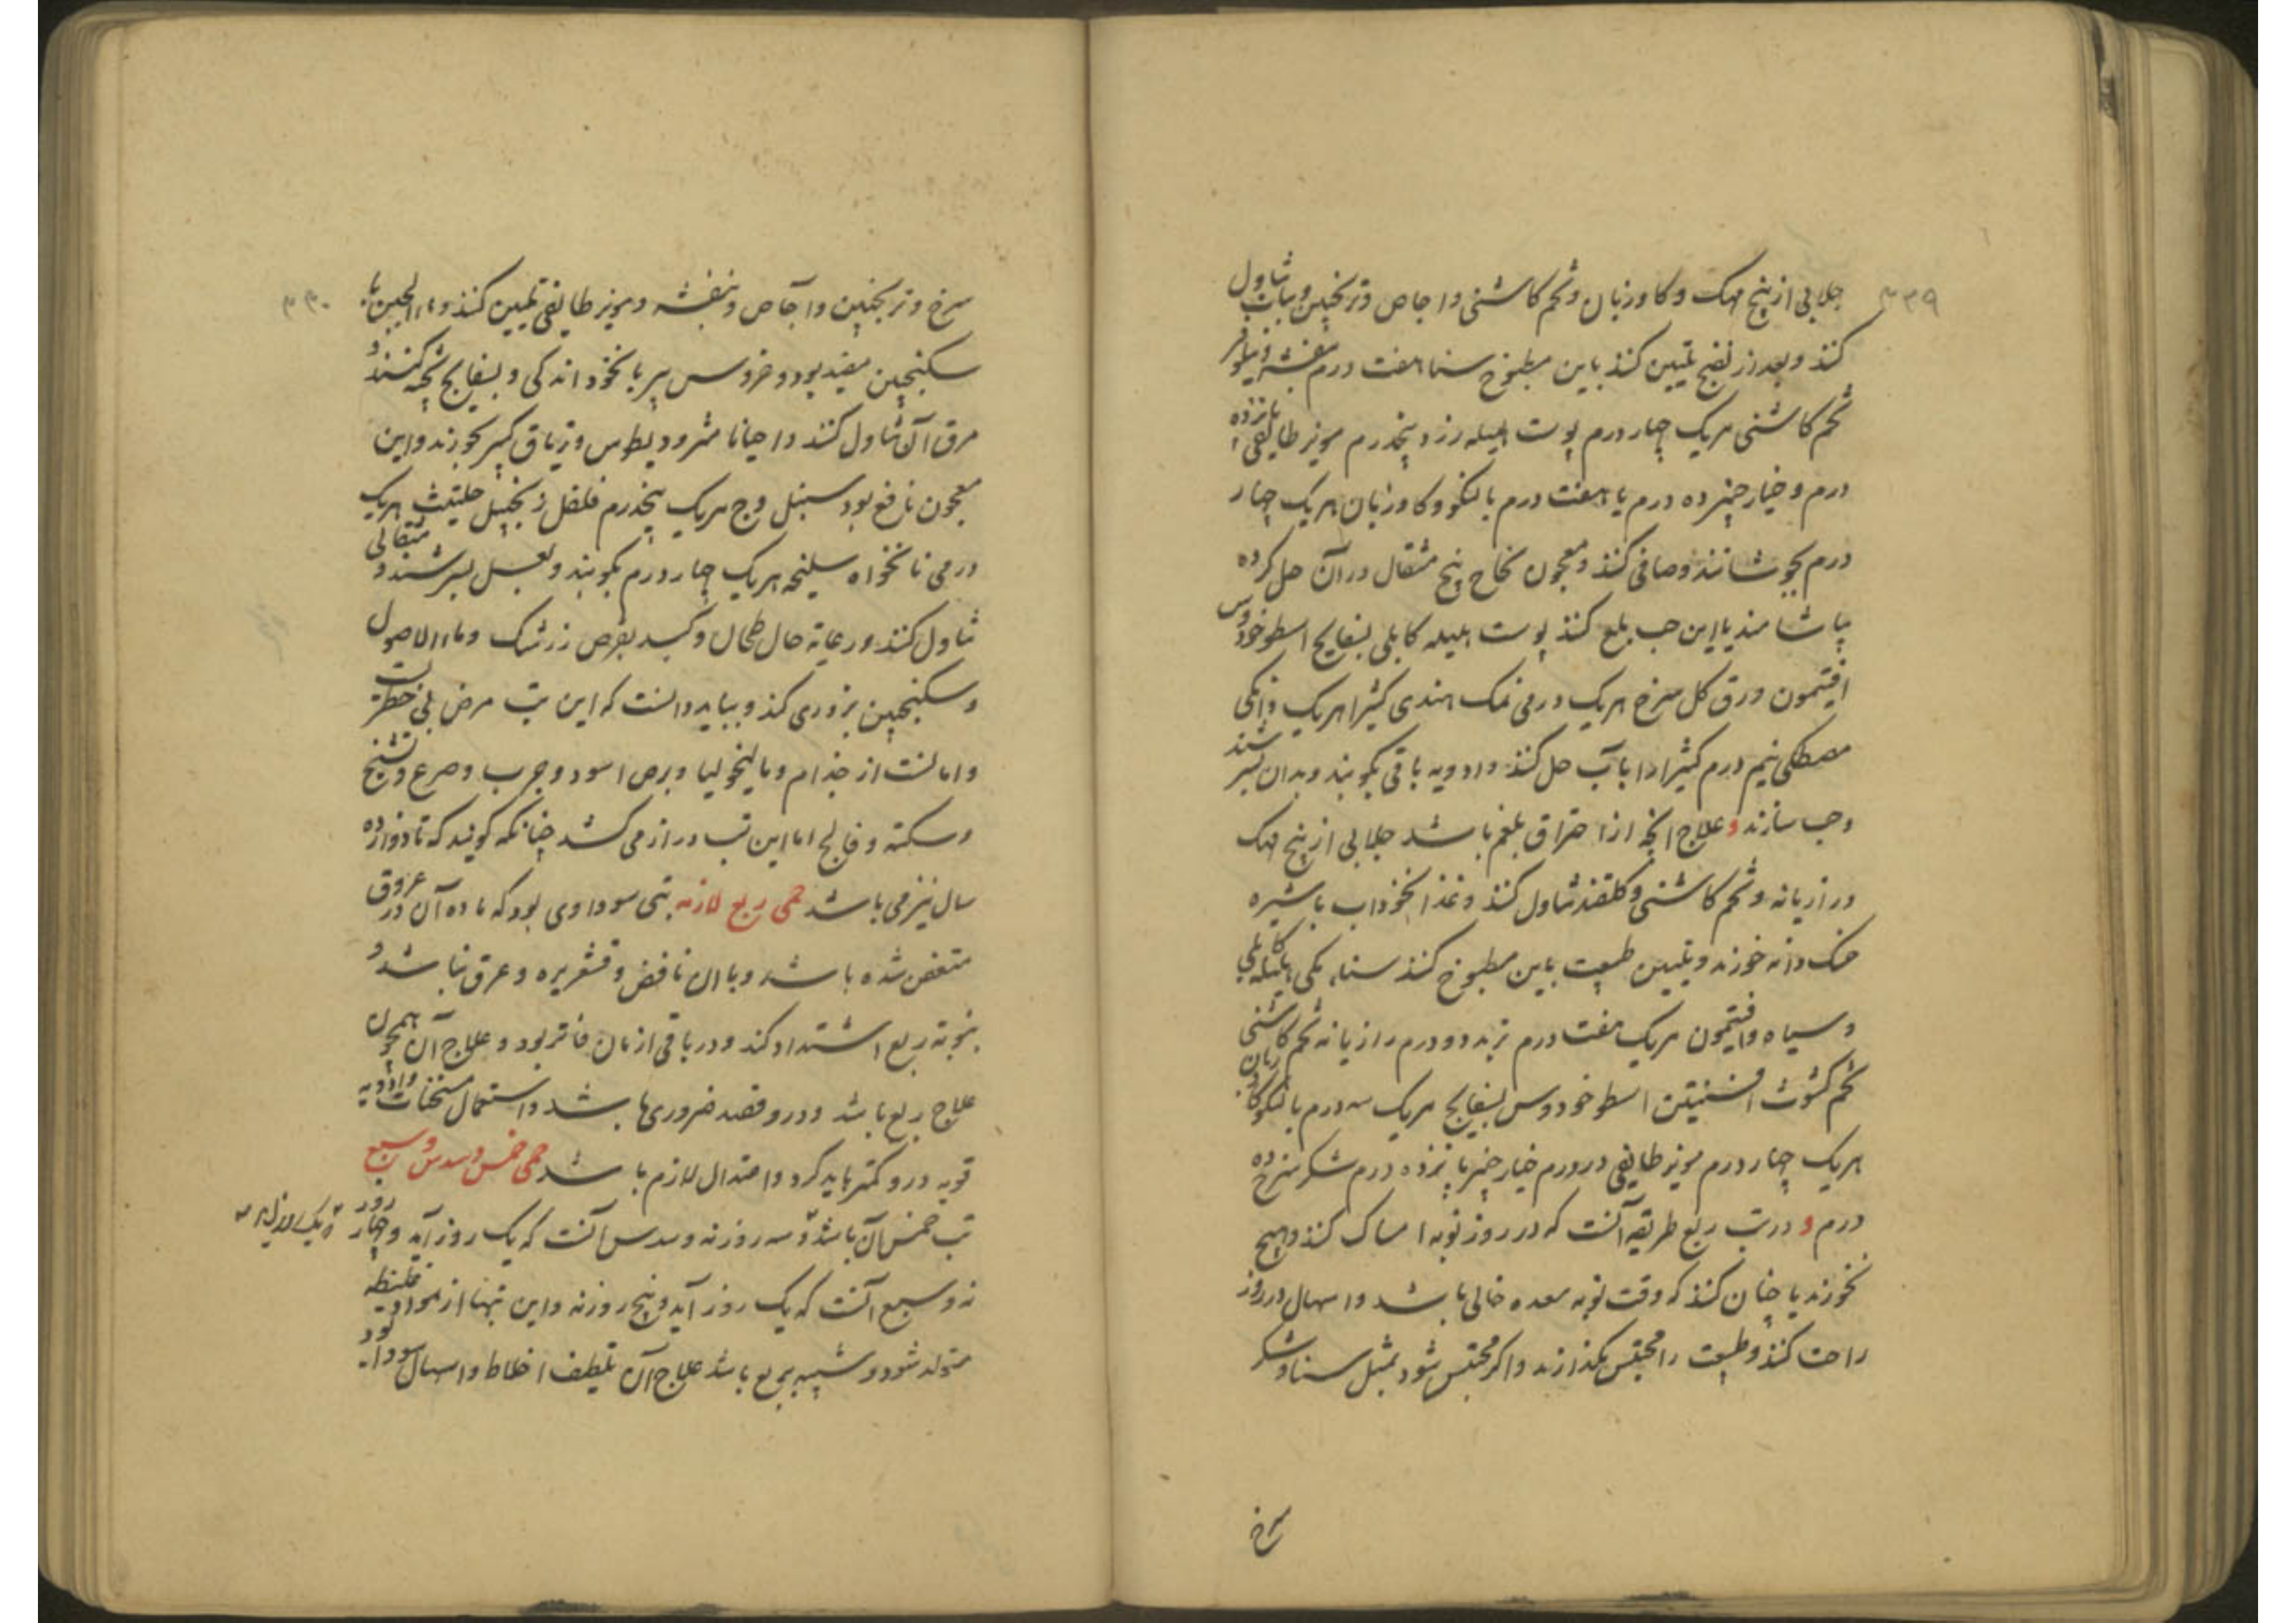 ۳۳۹
جلابی از بیخ مهک و کاوزبان و تخم کاشنی و اجاص و ترنجبین و نبات تناول
کنند و بعد از نضج تلیین کنند باین مطبوخ سنا هفت درم بنفشه نیلوفر
تخم کاشنی هریک چهار درم پوست هلیله زرد پنجدرم مویز طایفی پانزده
درم و خیار چنبر ده درم یا هفت درم بالنکو و کاوزبان هریک چهار
درم بجوشانند و صافی کنند و معجون نجاح پنج مثقال در آن حل کرده
بیاشامند یا این حب بلع کنند پوست هلیله کابلی بسفایج اسطوخودوس
افتیمون ورق کل سرخ هریک درمی نمک هندی کثیرا هریک دانکی
مصطکی نیم درم کثیرا را با آب حل کنند و ادویه باقی بکوبند و بدان بسرشند
و حب سازند و علاج انچه از احتراق بلغم باشد جلابی از بیخ مهک
و رازیانه و تخم کاشنی و کلقند تناول کنند و غذا نخوداب با شیره
خسک دانه خورند و تلیین طبیعت باین مطبوخ کنند سناء مکی هلیله کابلی
و سیاه و افتیمون هریک هفت درم تربد دو درم رازیانه تخم کاشنی
تخم کشوث افسنتین اسطوخودوس بسفایج هریک سه درم بالنکو کاوزبان
هریک چهار درم مویز طایفی ده درم خیار چنبر پانزده درم شکر سرخ ده
درم و در تب ربع طریقه آنست که در روز نوبه امساک کنند و هیچ
نخورند یا چنان کنند که وقت نوبه معده خالی باشد و اسهال در روز
راحت کنند و طبیعت را محتبس نکذارند و اکر محتبس شود بمثل سنا و شکر
سرخ
۳۴۰
سرخ و ترنجبین و آجاص و بنفشه و مویز طایفی تلیین کنند و ماء الجبن با
سکنجبین مفید بود و خروس پیر با نخود اندکی و بسفایج پخته کنند و
مرق آن تناول کنند و احیانا مثرودیطوس و تریاق کبیر خورند و این
معجون نافع بود سنبل وج هریک پنجدرم فلفل زنجبیل حلتیت هریک
درمی نانخواه سلیخه هریک چهار درم بکوبند و بعسل بسرشند و مثقالی
تناول کنند و رعایه حال طحال و کبد بقرص زرشک و ماء الاصول
و سکنجبین بزوری کنند و بباید دانست که این تب مرض بی خطرست
و امانست از جذام و مالیخولیا و برص اسود و جرب و صرع و تشنج
و سکته و فالج اما این تب دراز می کشد چنانکه کویند که تا دوازده
سال نیز می باشد حمی ربع لازمه تبی سوداوی بود که ماده آن در عروق
متعفن شده باشد و با ان نافض و قشعریره و عرق نباشد و
بنوبه ربع اشتداد کند و در باقی ازمان فاتر بود و علاج آن همچون
علاج ربع باشد و درو فصد ضروری باشد و استعمال مسخنات و ادویه
قویه درو کمتر باید کرد و اعتدال لازم باشد حمی خمس و سدس و سبع
تب خمس آن باشد و سه روز نه و سدس آنست که یک روز آید و چهار روز
نه و سبع آنست که یک روز آید و پنج روز نه و این تبها از مواد غلیظه
متولد شود و شبیه بربع باشد علاج آن تلطیف اخلاط و اسهال سودا بود